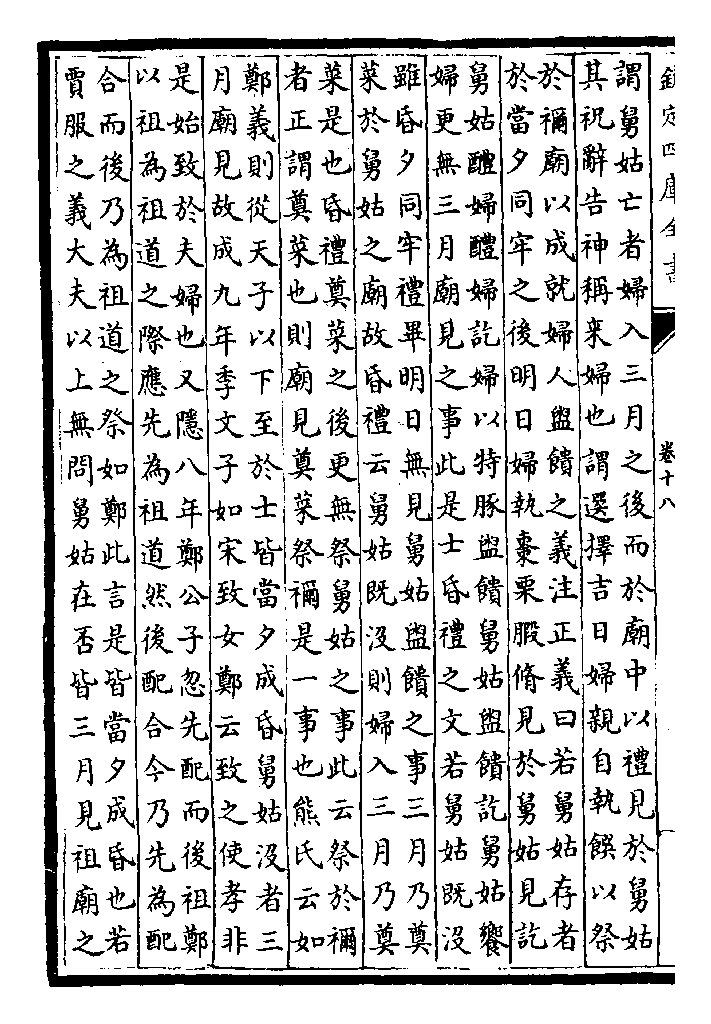 欽定四庫全書
卷十八
謂舅姑亡者婦入三月之後而於廟中以禮見於舅姑
其祝辭告神稱来婦也謂選擇吉日婦親自執饌以祭
於禰廟以成就婦人盥饋之義注正義曰若舅姑存者
於當夕同牢之後明日婦執棗栗腶脩見於舅姑見訖
舅姑醴婦醴婦訖婦以特豚盥饋舅姑盥饋訖舅姑饗
婦更無三月廟見之事此是士昏禮之文若舅姑既沒
雖昏夕同牢禮畢明日無見舅姑盥饋之事三月乃奠
菜於舅姑之廟故昏禮云舅姑既沒則婦入三月乃奠
菜是也昏禮奠菜之後更無祭舅姑之事此云祭於禰
者正謂奠菜也則廟見奠菜祭禰是一事也熊氏云如
鄭義則從天子以下至於士皆當夕成昏舅姑沒者三
月廟見故成九年季文子如宋致女鄭云致之使孝非
是始致於夫婦也又隱八年鄭公子忽先配而後祖鄭
以祖為祖道之際應先為祖道然後配合今乃先為配
合而後乃為祖道之祭如鄭此言是皆當夕成昏也若
賈服之義大夫以上無問舅姑在否皆三月見祖廟之